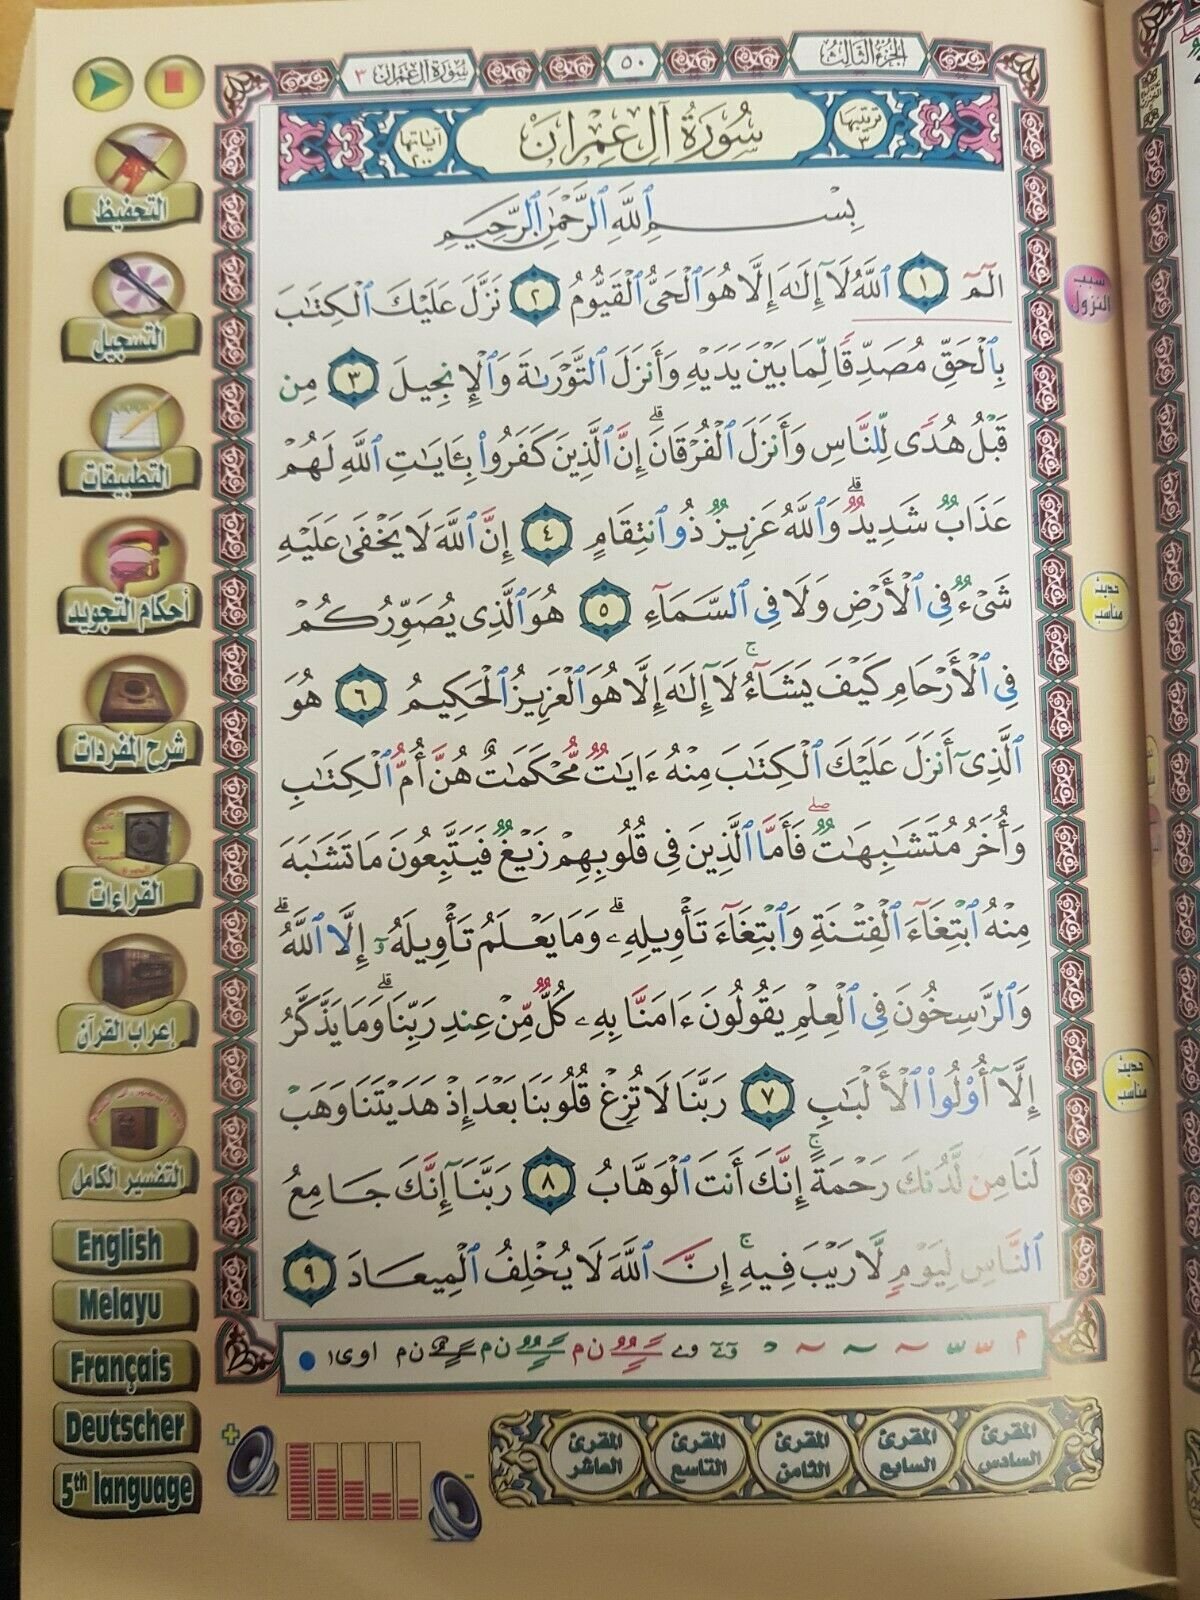 الجزء الثالث
٥٠
سورة آل عمران ٣
ترتيبها ٣
سورة آل عمران
آياتها ٢٠٠
بِسْمِ ٱللَّهِ ٱلرَّحْمَٰنِ ٱلرَّحِيمِ
الٓمٓ ١ ٱللَّهُ لَآ إِلَٰهَ إِلَّا هُوَ ٱلْحَىُّ ٱلْقَيُّومُ ٢ نَزَّلَ عَلَيْكَ ٱلْكِتَٰبَ
بِٱلْحَقِّ مُصَدِّقًا لِّمَا بَيْنَ يَدَيْهِ وَأَنزَلَ ٱلتَّوْرَىٰةَ وَٱلْإِنجِيلَ ٣ مِن
قَبْلُ هُدًى لِّلنَّاسِ وَأَنزَلَ ٱلْفُرْقَانَ ۗ إِنَّ ٱلَّذِينَ كَفَرُوا۟ بِـَٔايَٰتِ ٱللَّهِ لَهُمْ
عَذَابٌ شَدِيدٌ ۗ وَٱللَّهُ عَزِيزٌ ذُو ٱنتِقَامٍ ٤ إِنَّ ٱللَّهَ لَا يَخْفَىٰ عَلَيْهِ
شَىْءٌ فِى ٱلْأَرْضِ وَلَا فِى ٱلسَّمَآءِ ٥ هُوَ ٱلَّذِى يُصَوِّرُكُمْ
فِى ٱلْأَرْحَامِ كَيْفَ يَشَآءُ ۚ لَآ إِلَٰهَ إِلَّا هُوَ ٱلْعَزِيزُ ٱلْحَكِيمُ ٦ هُوَ
ٱلَّذِىٓ أَنزَلَ عَلَيْكَ ٱلْكِتَٰبَ مِنْهُ ءَايَٰتٌ مُّحْكَمَٰتٌ هُنَّ أُمُّ ٱلْكِتَٰبِ
وَأُخَرُ مُتَشَٰبِهَٰتٌ ۖ فَأَمَّا ٱلَّذِينَ فِى قُلُوبِهِمْ زَيْغٌ فَيَتَّبِعُونَ مَا تَشَٰبَهَ
مِنْهُ ٱبْتِغَآءَ ٱلْفِتْنَةِ وَٱبْتِغَآءَ تَأْوِيلِهِۦ ۗ وَمَا يَعْلَمُ تَأْوِيلَهُۥٓ إِلَّا ٱللَّهُ ۗ
وَٱلرَّٰسِخُونَ فِى ٱلْعِلْمِ يَقُولُونَ ءَامَنَّا بِهِۦ كُلٌّ مِّنْ عِندِ رَبِّنَا ۗ وَمَا يَذَّكَّرُ
إِلَّآ أُو۟لُوا۟ ٱلْأَلْبَٰبِ ٧ رَبَّنَا لَا تُزِغْ قُلُوبَنَا بَعْدَ إِذْ هَدَيْتَنَا وَهَبْ
لَنَا مِن لَّدُنكَ رَحْمَةً ۚ إِنَّكَ أَنتَ ٱلْوَهَّابُ ٨ رَبَّنَآ إِنَّكَ جَامِعُ
ٱلنَّاسِ لِيَوْمٍ لَّا رَيْبَ فِيهِ ۚ إِنَّ ٱللَّهَ لَا يُخْلِفُ ٱلْمِيعَادَ ٩
سبب
النزول
حديث
مناسب
حديث
مناسب
التحفيظ
التسجيل
التطبيقات
أحكام التجويد
شرح المفردات
القراءات
إعراب القرآن
التفسير الكامل
English
Melayu
Français
Deutscher
5th language
+
-
المقرئ السادس
المقرئ السابع
المقرئ الثامن
المقرئ التاسع
المقرئ العاشر